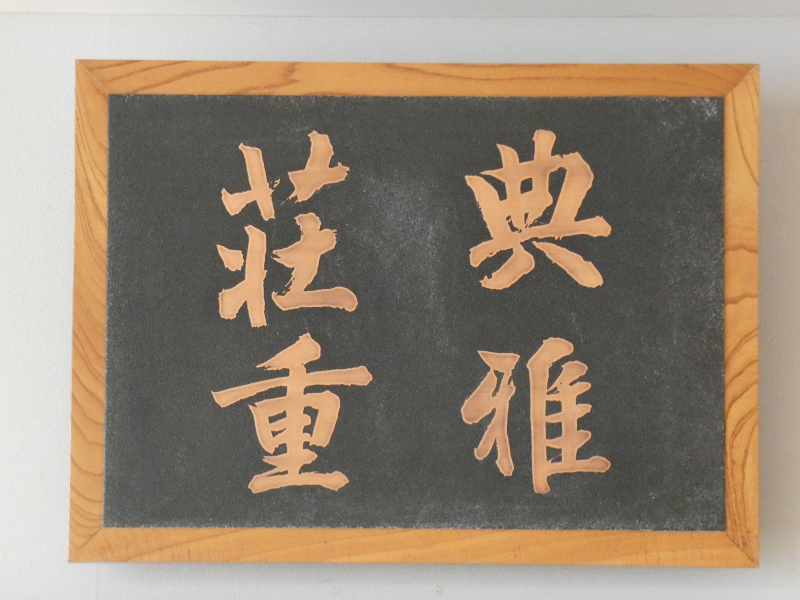 典雅
荘重